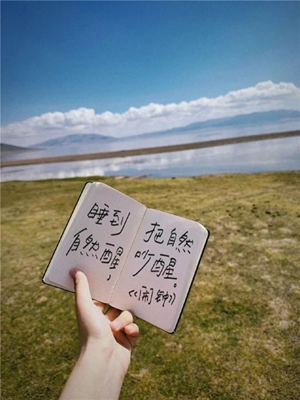 睡到
自然醒，
把自然
吵醒。
《闹钟》